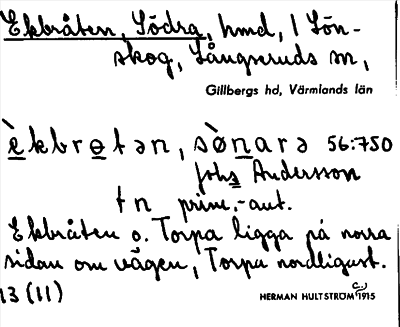 Ekbråten, Södra, hmd, i Lön-
skog, Långseruds sn,
Gillbergs hd, Värmlands län
èkbrotən, sònarə 56:750
Johs Andersson
tn prim.-ant.
Ekbråten o. Torpa ligga på norra
sidan om vägen, Torpa nordligast.
13 (11)
HERMAN HULTSTRÖM 1915